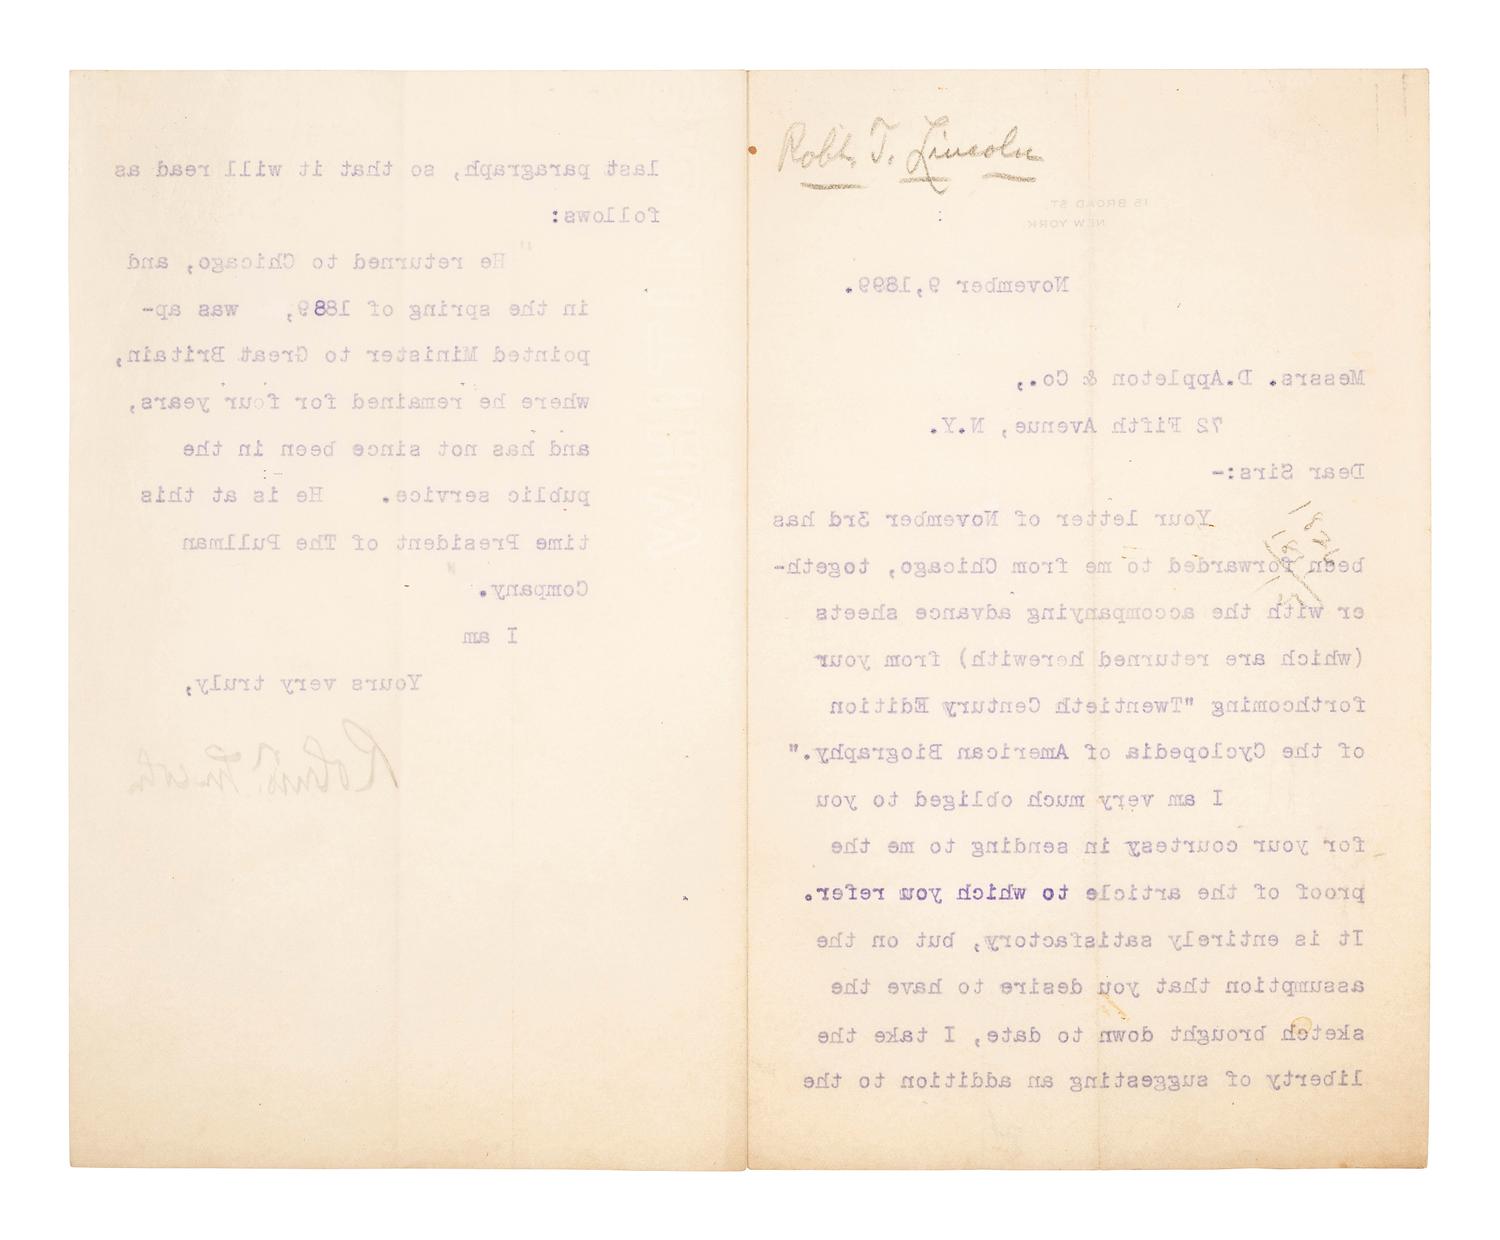 Robt. T. Lincoln
15 BROAD ST.
NEW YORK
November 9, 1899.
Messrs. D. Appleton & Co.,
72 Fifth Avenue, N.Y.
Dear Sirs:-
Your letter of November 3rd has
been forwarded to me from Chicago, togeth-
er with the accompanying advance sheets
(which are returned herewith) from your
forthcoming "Twentieth Century Edition
of the Cyclopedia of American Biography."
I am very much obliged to you
for your courtesy in sending to me the
proof of the article to which you refer.
It is entirely satisfactory, but on the
assumption that you desire to have the
sketch brought down to date, I take the
liberty of suggesting an addition to the
last paragraph, so that it will read as
follows:
"He returned to Chicago, and
in the spring of 1889, was ap-
pointed Minister to Great Britain,
where he remained for four years,
and has not since been in the
public service. He is at this
time President of The Pullman
Company."
I am
Yours very truly,
Robert T. Lincoln